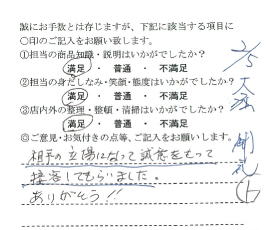 誠にお手数とは存じますが、下記に該当する項目に
○印のご記入をお願い致します。
①担当の商品知識・説明はいかがでしたか？
満足 ・ 普通 ・ 不満足
②担当の身だしなみ・笑顔・態度はいかがでしたか？
満足 ・ 普通 ・ 不満足
③店内外の整理・整頓・清掃はいかがでしたか？
満足 ・ 普通 ・ 不満足
◎ご意見・お気付きの点等、ご記入をお願いします。
相手の立場になって誠意をもって
接客してもらいました。
ありがとう!!
2/5